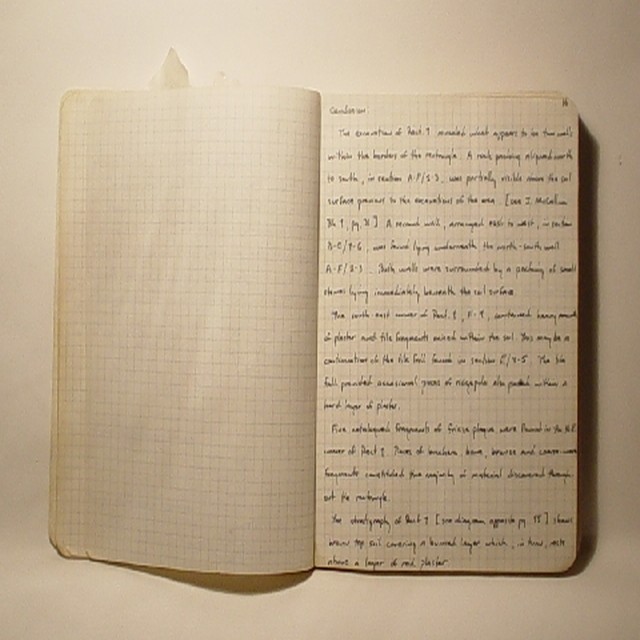 Conclusion:
The excavation of Rect. 9 revealed what appears to be two walls
within the borders of the rectangle. A rock packing aligned north
to south, in section A-F/2-3, was partially visible above the soil
surface previous to the excavations of the area. [see J. McCallum
Bk 1, pg. 31] A second wall, arranged east to west, in section
B-C/3-6, was found lying underneath the north-south wall
A-F/2-3. Both walls were surrounded by a packing of small
stones lying immediately beneath the soil surface.
The north east corner of Rect. 9, F-9, contained heavy amounts
of plaster and tile fragments mixed within the soil. This may be a
continuation of the tile fall found in section C/3-5. The tile
fall provided occasional pieces of also packed within a
hard layer of plaster.
Five catalogued fragments of frieze plaque were found in the N.E.
corner of Rect 9. Pieces of bucchero, bone, bronze and coarse-ware
fragments constituted the majority of material discovered through-
out the rectangle.
The stratigraphy of Rect 9 [see diagram opposite pg. 15] shows
brown top soil covering a burned layer which, in turn, rests
above a layer of red plaster.